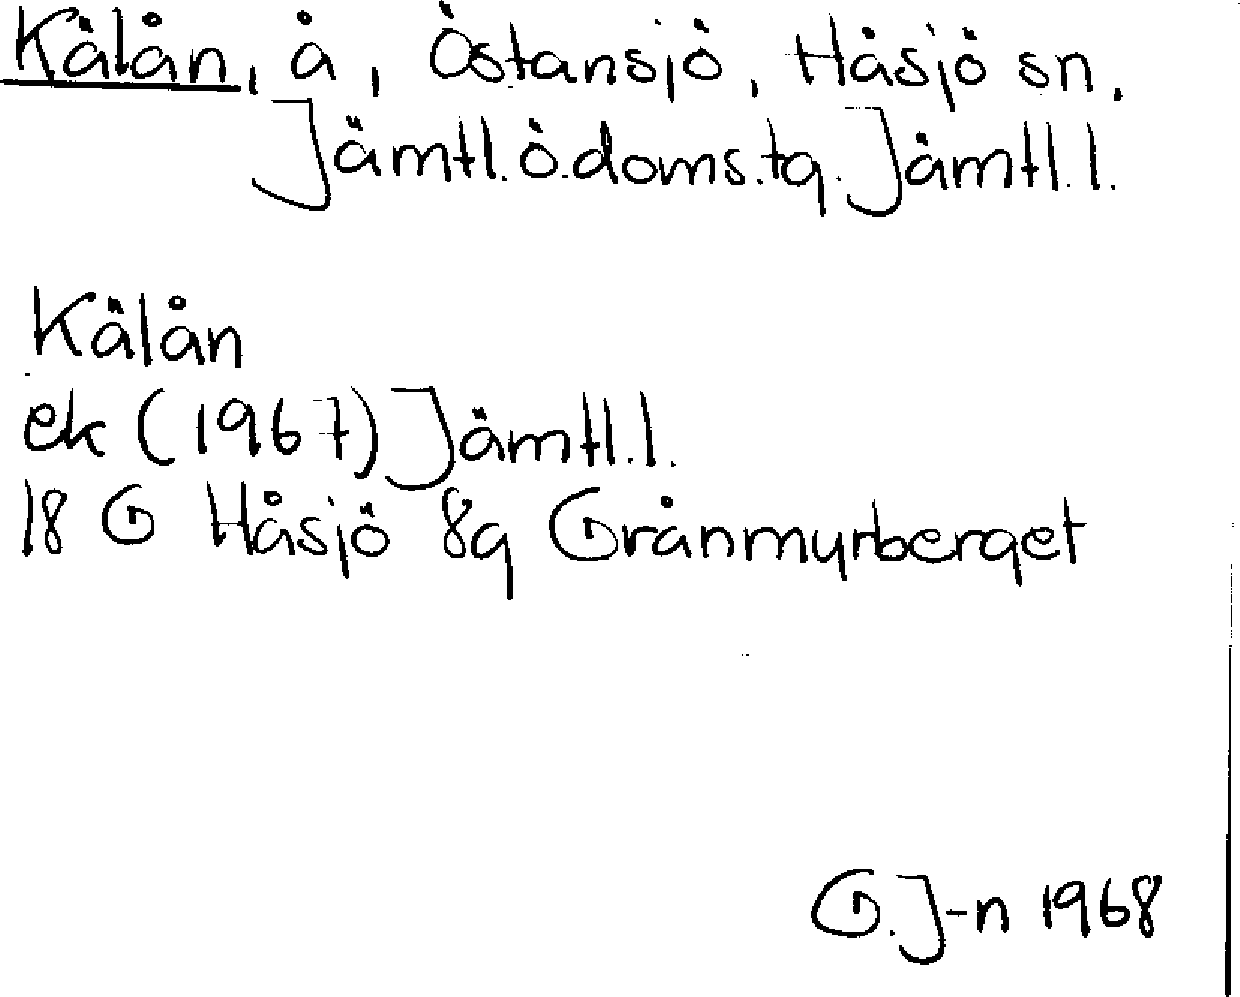 Kälån, å, Östansjö, Håsjö sn.
Jämtl.ö.doms.tg. Jämtl.l.
Kälån
ek (1967) Jämtl.l.
18 G Håsjö 8g Grånmyrberget
G.J-n 1968